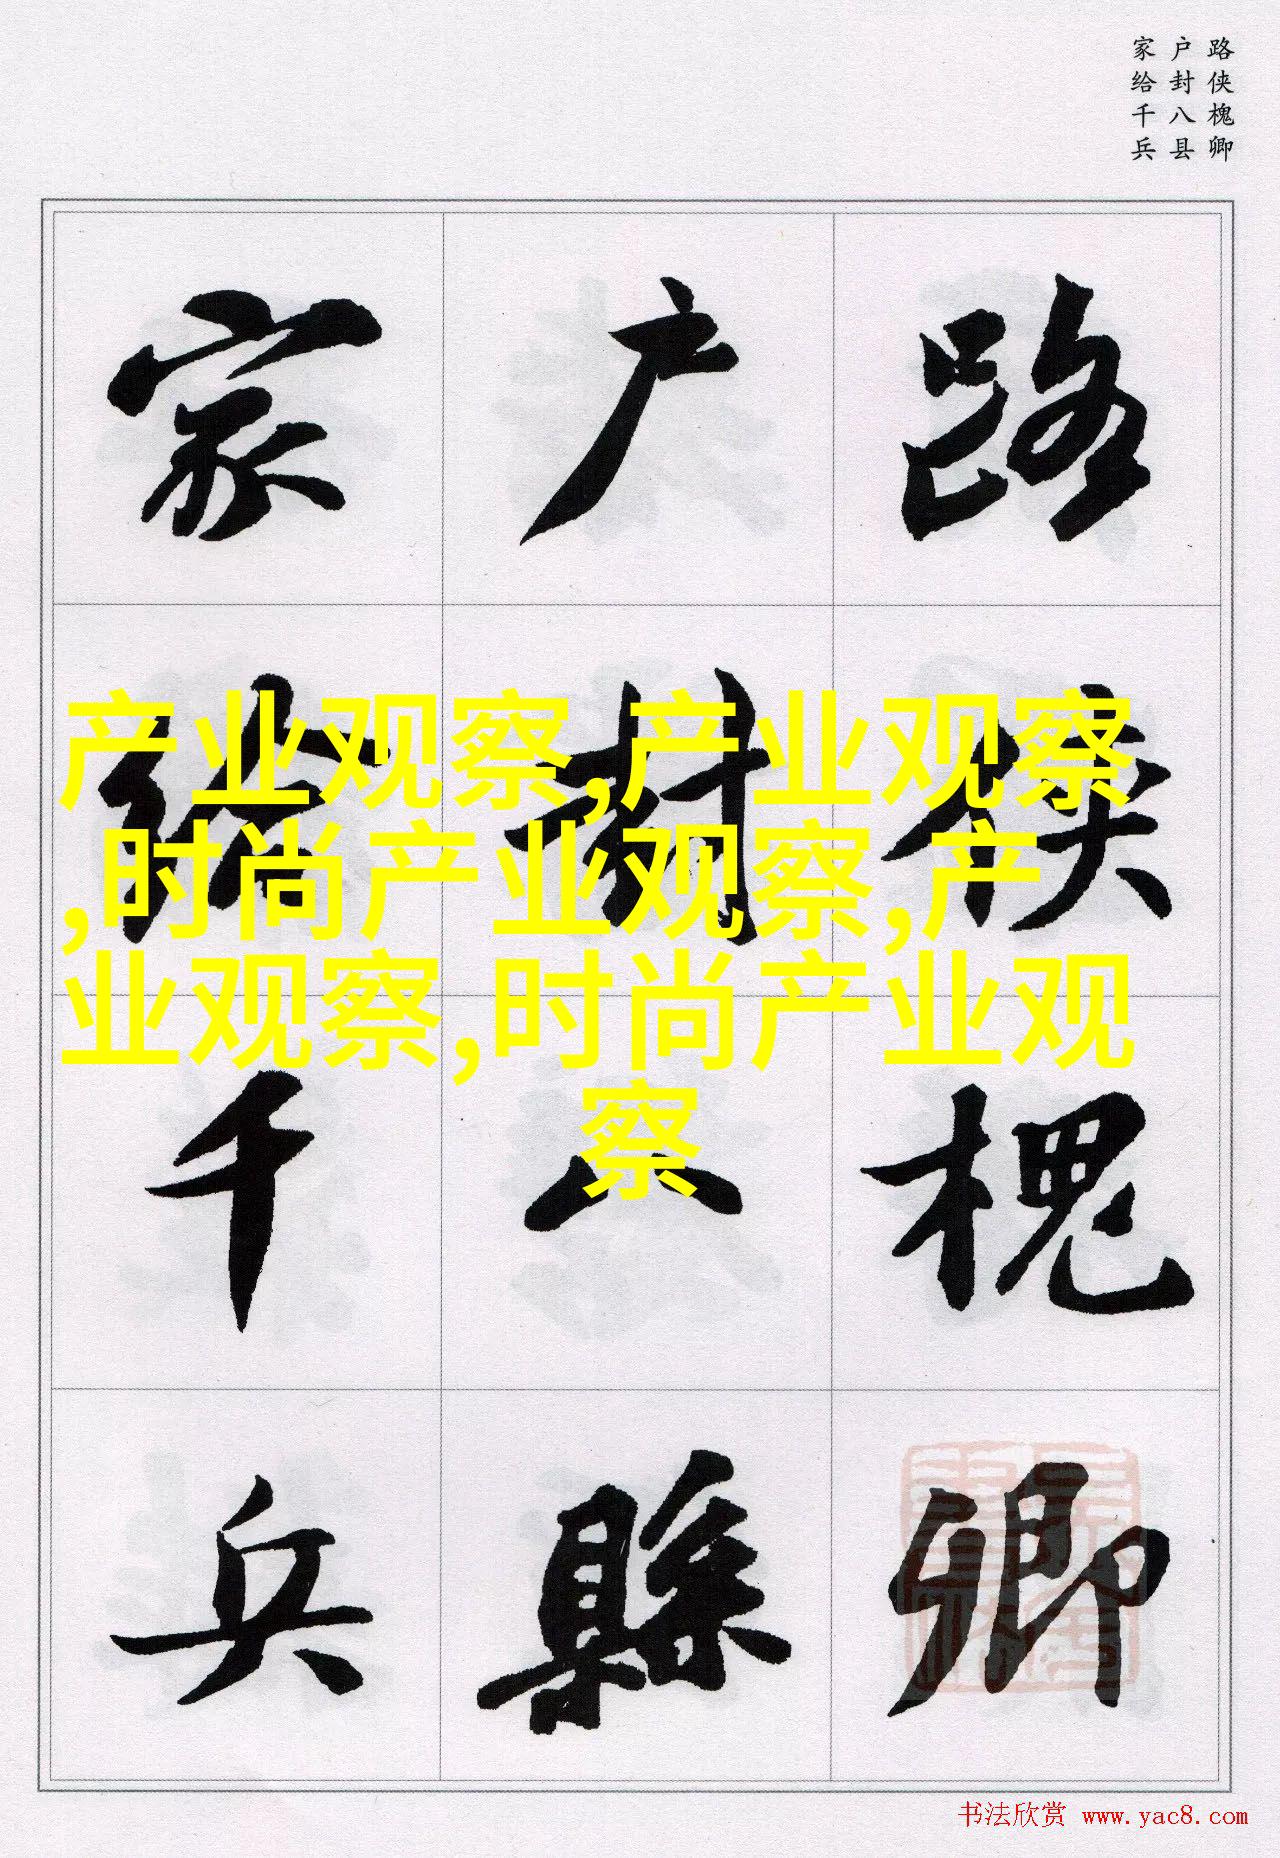 路侠槐卿
户封八县
家给千兵
路俠槐卿
户封八縣
家給千兵
产业观察,产业观察
,时尚产业观察,产
业观察,时尚产业观
察
书法欣赏 www.yac8.com